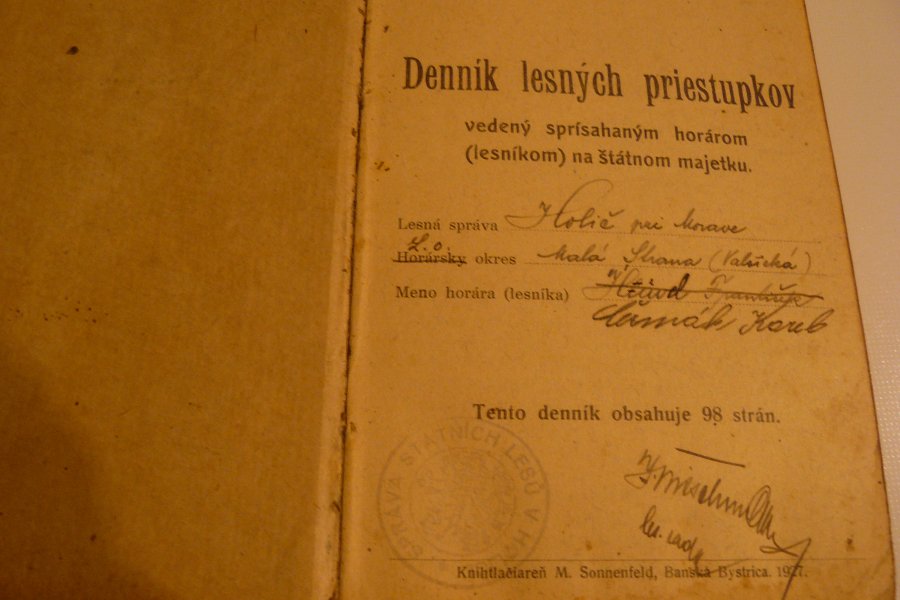 Denník lesných priestupkov
vedený sprísahaným horárom
(lesníkom) na štátnom majetku.
Lesná správa Holič pri Morave
L. o.
Horársky okres Malá Strana (Valšická)
Meno horára (lesníka)
Čermák Karel
Tento denník obsahuje 98 strán.
SPRÁVA STÁTNÍCH LESŮ V
les. rada
Knihtlačiareň M. Sonnenfeld, Banská Bystrica. 1927.